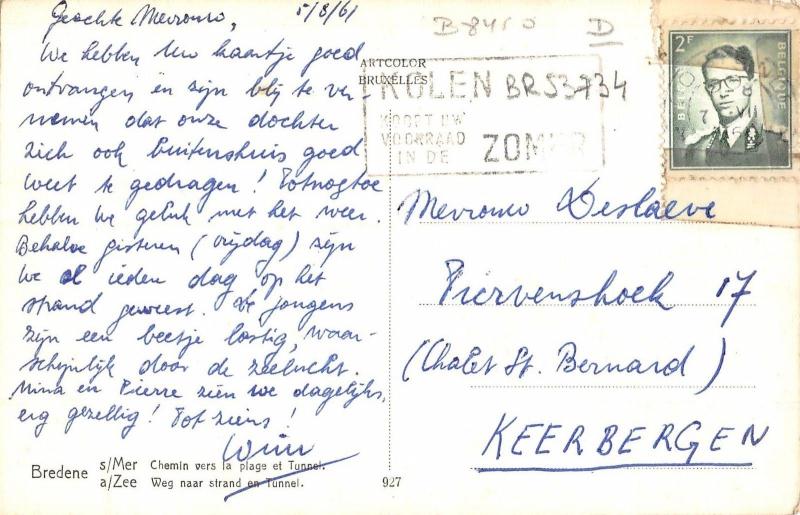 5/8/61
Geachte Mevrouw,
We hebben Uw kaartje goed
ontvangen en zijn blij te ver-
nemen dat onze dochter
zich ook buitenshuis goed
weet te gedragen! Totnogtoe
hebben we geluk met het weer.
Behalve gisteren (vrijdag) zijn
we al ieden dag op het
strand geweest. De jongens
zijn een beetje lastig, waar-
schijnlijk door de zeelucht.
Nina en Pierre zien we dagelijks,
erg gezellig! Tot ziens!
Wim
Bredene s/Mer Chemin vers la plage et Tunnel.
a/Zee Weg naar strand en Tunnel.
927
ARTCOLOR
BRUXELLES
B8450 D
KOLEN
BR53734
KOOPT UW
VOORRAAD
IN DE ZOMER
2F
BELGIQUE
BELGIE
Mevrouw Deslaeve
Piervenshoek 17
(Chalet St. Bernard)
KEERBERGEN